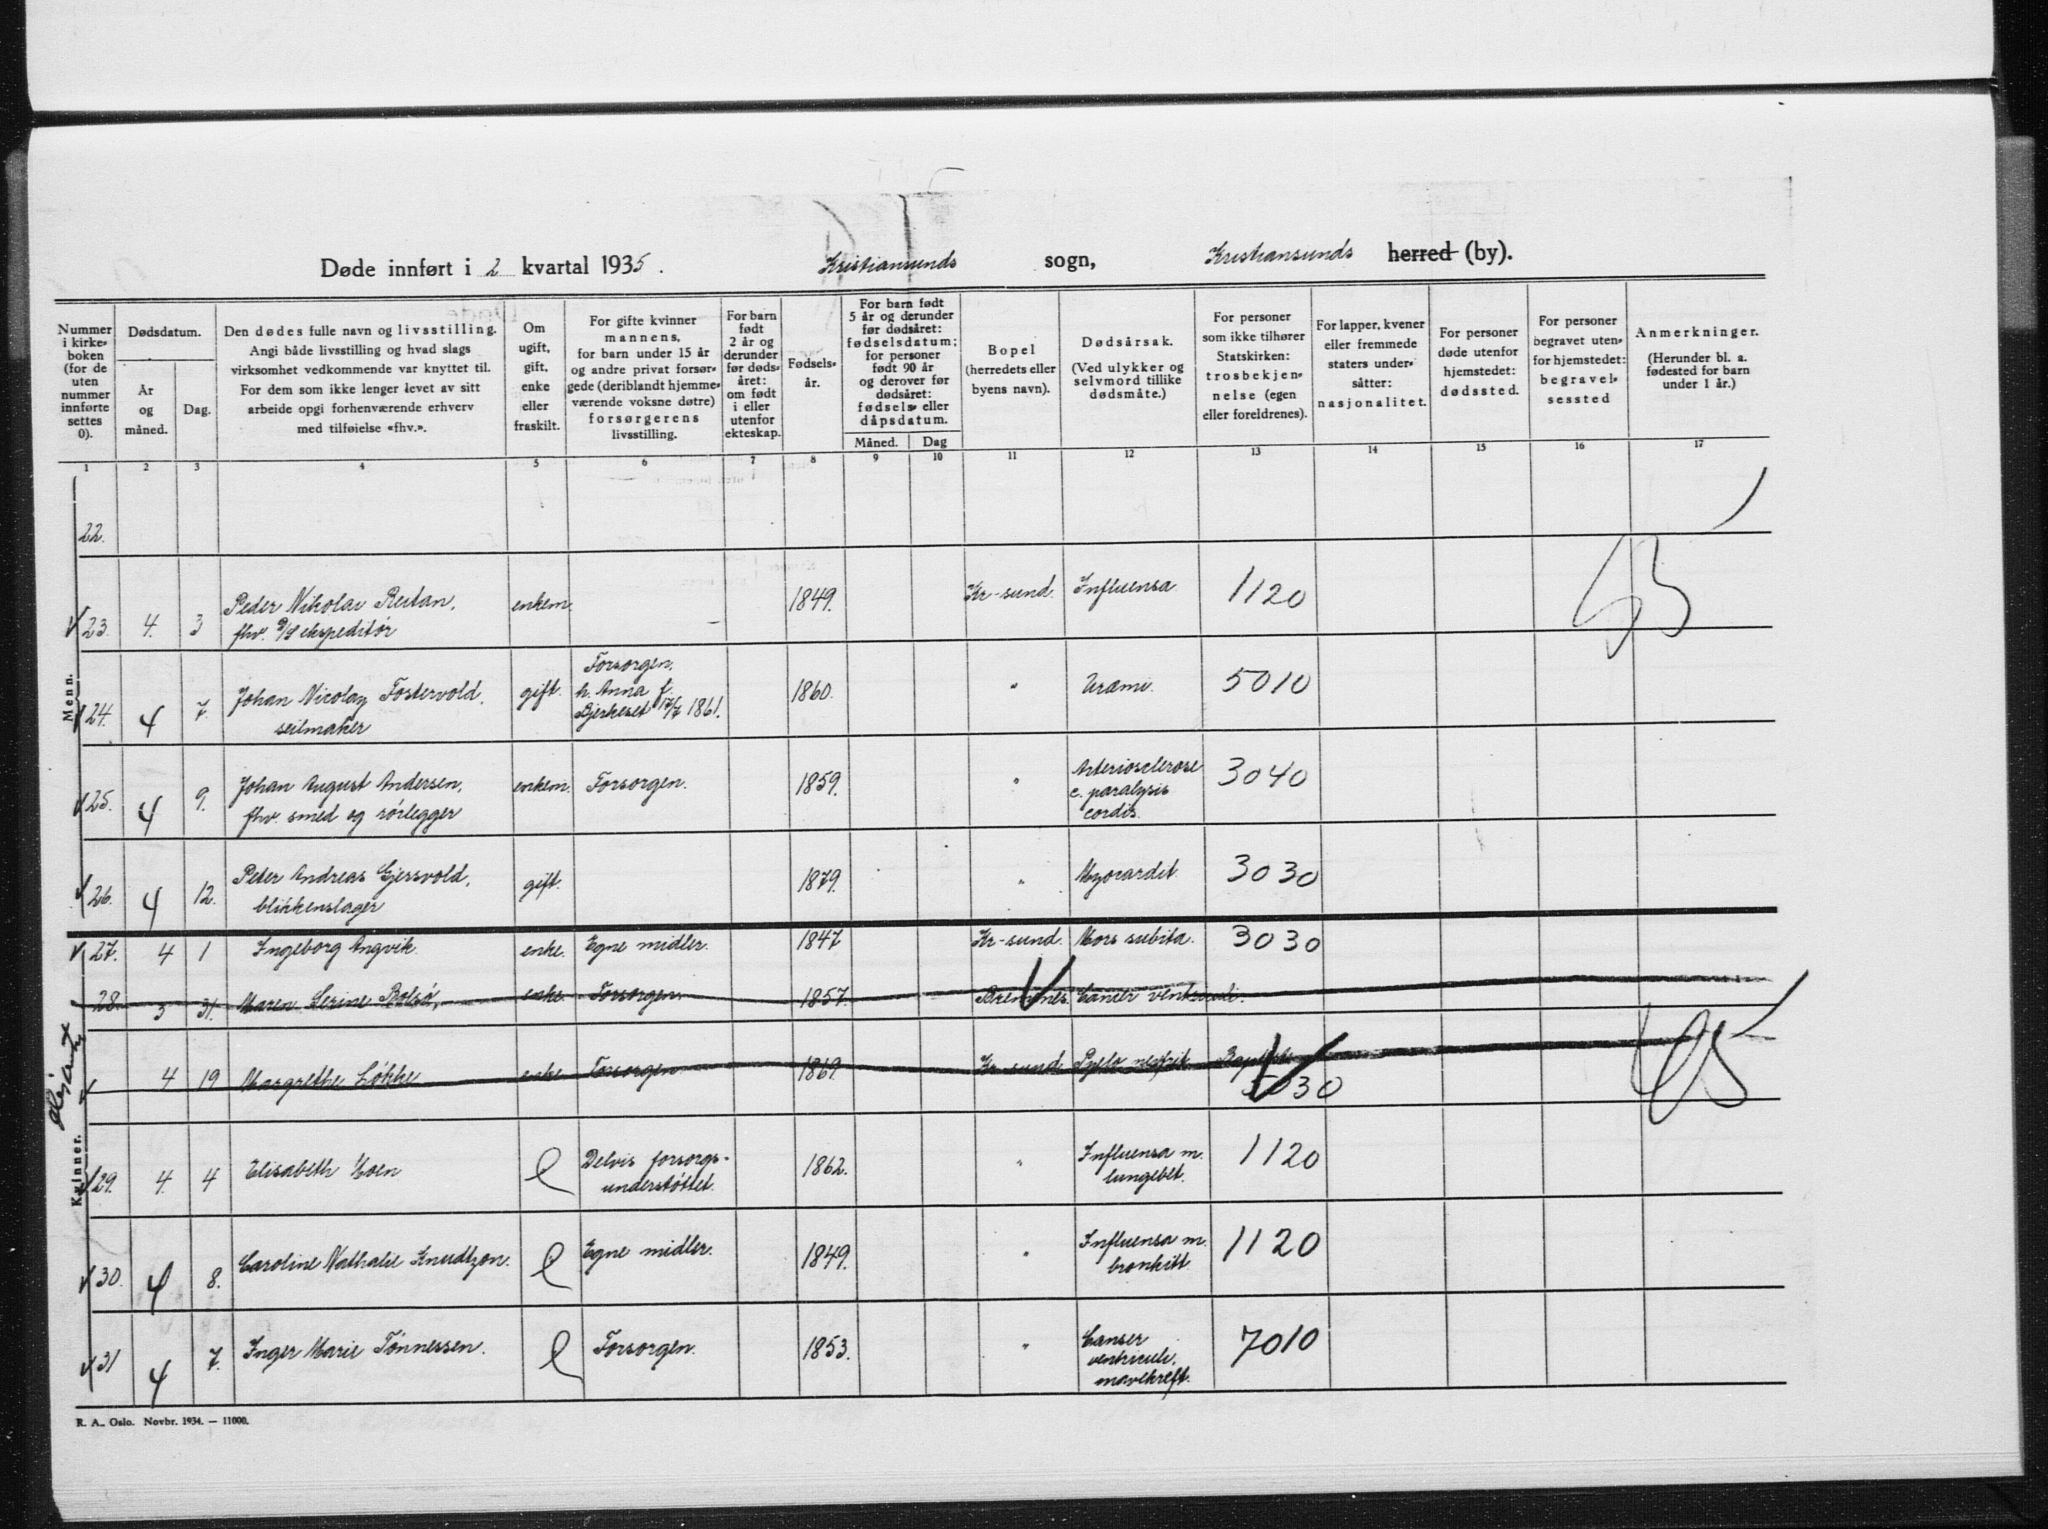 Døde innført i 2 kvartal 1935. Kristiansunds sogn, Kristiansunds herred (by).
Nummer i kirkeboken (for de uten nummer innførte settes 0).
Dødsdatum.
År og måned.
Dag.
Den dødes fulle navn og livsstilling. Angi både livsstilling og hvad slags virksomhet vedkommende var knyttet til. For dem som ikke lenger levet av sitt arbeide opgi forhenværende erhverv med tilføielse «fhv.».
Om ugift, gift, enke eller fraskilt.
For gifte kvinner mannens, for barn under 15 år og andre privat forsørgede (deriblandt hjemmeværende voksne døtre) forsørgerens livsstilling.
For barn født 2 år og derunder før dødsåret: om født i eller utenfor ekteskap.
Fødselsår.
For barn født 5 år og derunder før dødsåret: fødselsdatum; for personer født 90 år og derover før dødsåret: fødsels- eller dåpsdatum.
Måned. Dag
Bopel (herredets eller byens navn).
Dødsårsak. (Ved ulykker og selvmord tillike dødsmåte.)
For personer som ikke tilhører Statskirken: trosbekjennelse (egen eller foreldrenes).
For lapper, kvener eller fremmede staters undersåtter: nasjonalitet.
For personer døde utenfor hjemstedet: dødssted.
For personer begravet utenfor hjemstedet: begravelsessted
Anmerkninger. (Herunder bl. a. fødested for barn under 1 år.)
1 2 3 4 5 6 7 8 9 10 11 12 13 14 15 16 17
Menn.
22.
23. 4. 3 Peder Nikolai Reitan, enkem. 1849. Kr-sund. Influensa 1120
fhv. D/S ekspeditør
24. 4 7. Johan Nicolay Fostervold, gift. Forsorgen. 1860. " Uræmi. 5010
seilmaker h. Anna f.
Bjerkeset 17/7 1861.
25. 4 9. Johan August Andersen, enkem. Forsorgen. 1859. " Arteriosclerose 3040
fhv. smed og rørlegger c. paralysis
cordis.
26. 4 12. Peter Andreas Gjersvold, gift. 1879. " Myocardit. 3030
blikkenslager
Kvinner.
27. 4 1 Ingeborg Angvik. enke. Egne midler. 1847 Kr-sund. Mors subita. 3030
28. 3 31. Maren Serine Bolsø, enke. Forsorgen. 1857. Bremsnes. Cancer ventriculi.
4 19 Margrethe Løkke enke Forsorgen 1869. Kr-sund Pyelo nefrit
29. 4. 4 Elisabeth Hoen e Delvis forsorgs- 1862. " Influensa m. 1120
understøttet. lungebet.
30. 4 8. Caroline Nathalie Knudtzon. e Egne midler. 1849. " Influensa m. 1120
bronkitt.
31 4 7. Inger Marie Tønnessen. e Forsorgen. 1853. " Canser 7010
ventriculi,
mavekreft.
R. A., Oslo. Novbr. 1934. — 11000.